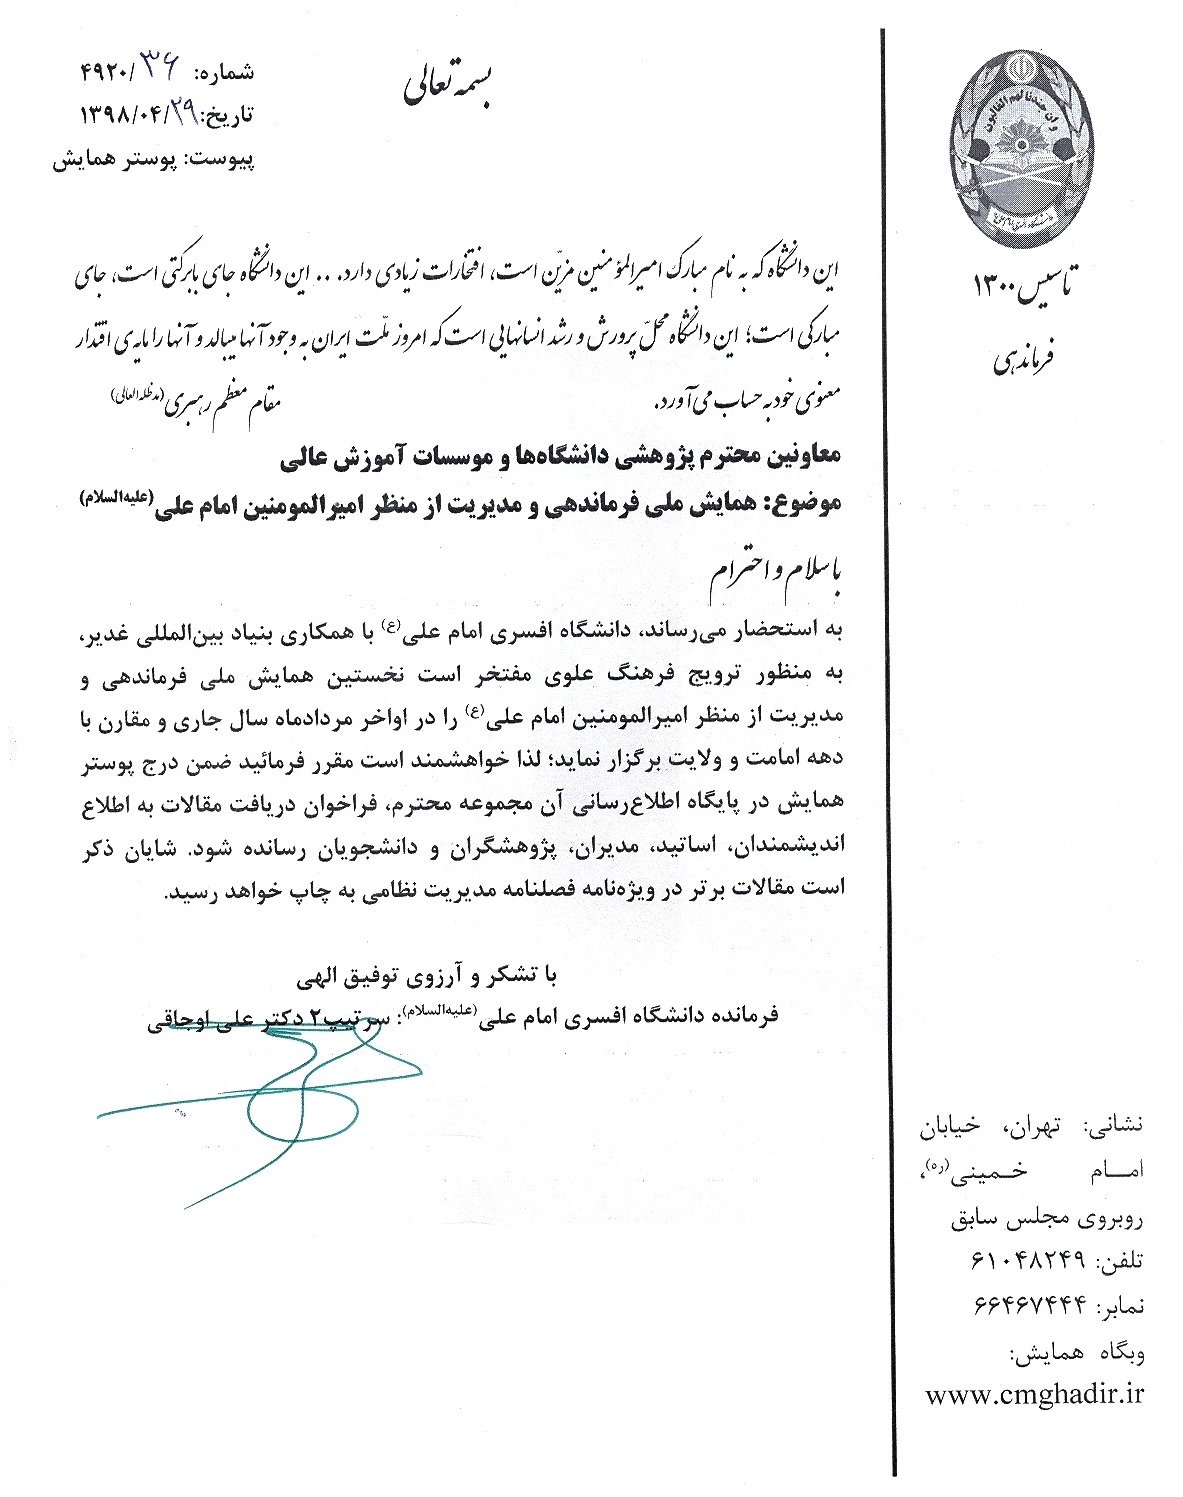 بسمه تعالی
شماره: ۴۹۲۰/۳۶
تاریخ: ۱۳۹۸/۰۴/۲۹
پیوست: پوستر همایش
وان جندنا لهم الغالبون
تاسیس ۱۳۰۰
فرماندهی
این دانشگاه که به نام مبارک امیرالمؤمنین مزیّن است، افتخارات زیادی دارد. . . این دانشگاه جای بابرکتی است، جای
مبارکی است؛ این دانشگاه محلّ پرورش و رشد انسانهایی است که امروز ملّت ایران به وجود آنها میبالد و آنها را مایه‌ی اقتدار
معنوی خود به حساب می‌آورد.
مقام معظم رهبری (مدظله العالی)
معاونین محترم پژوهشی دانشگاه‌ها و موسسات آموزش عالی
موضوع: همایش ملی فرماندهی و مدیریت از منظر امیرالمومنین امام علی (علیه‌السلام)
با سلام و احترام
به استحضار می‌رساند، دانشگاه افسری امام علی(ع) با همکاری بنیاد بین‌المللی غدیر،
به منظور ترویج فرهنگ علوی مفتخر است نخستین همایش ملی فرماندهی و
مدیریت از منظر امیرالمومنین امام علی(ع) را در اواخر مردادماه سال جاری و مقارن با
دهه امامت و ولایت برگزار نماید؛ لذا خواهشمند است مقرر فرمائید ضمن درج پوستر
همایش در پایگاه اطلاع‌رسانی آن مجموعه محترم، فراخوان دریافت مقالات به اطلاع
اندیشمندان، اساتید، مدیران، پژوهشگران و دانشجویان رسانده شود. شایان ذکر
است مقالات برتر در ویژه‌نامه فصلنامه مدیریت نظامی به چاپ خواهد رسید.
با تشکر و آرزوی توفیق الهی
فرمانده دانشگاه افسری امام علی(علیه‌السلام): سرتیپ۲ دکتر علی اوجاقی
نشانی: تهران، خیابان
امام خمینی(ره)،
روبروی مجلس سابق
تلفن: ۶۱۰۴۸۲۴۹
نمابر: ۶۶۴۶۷۴۴۴
وبگاه همایش:
www.cmghadir.ir